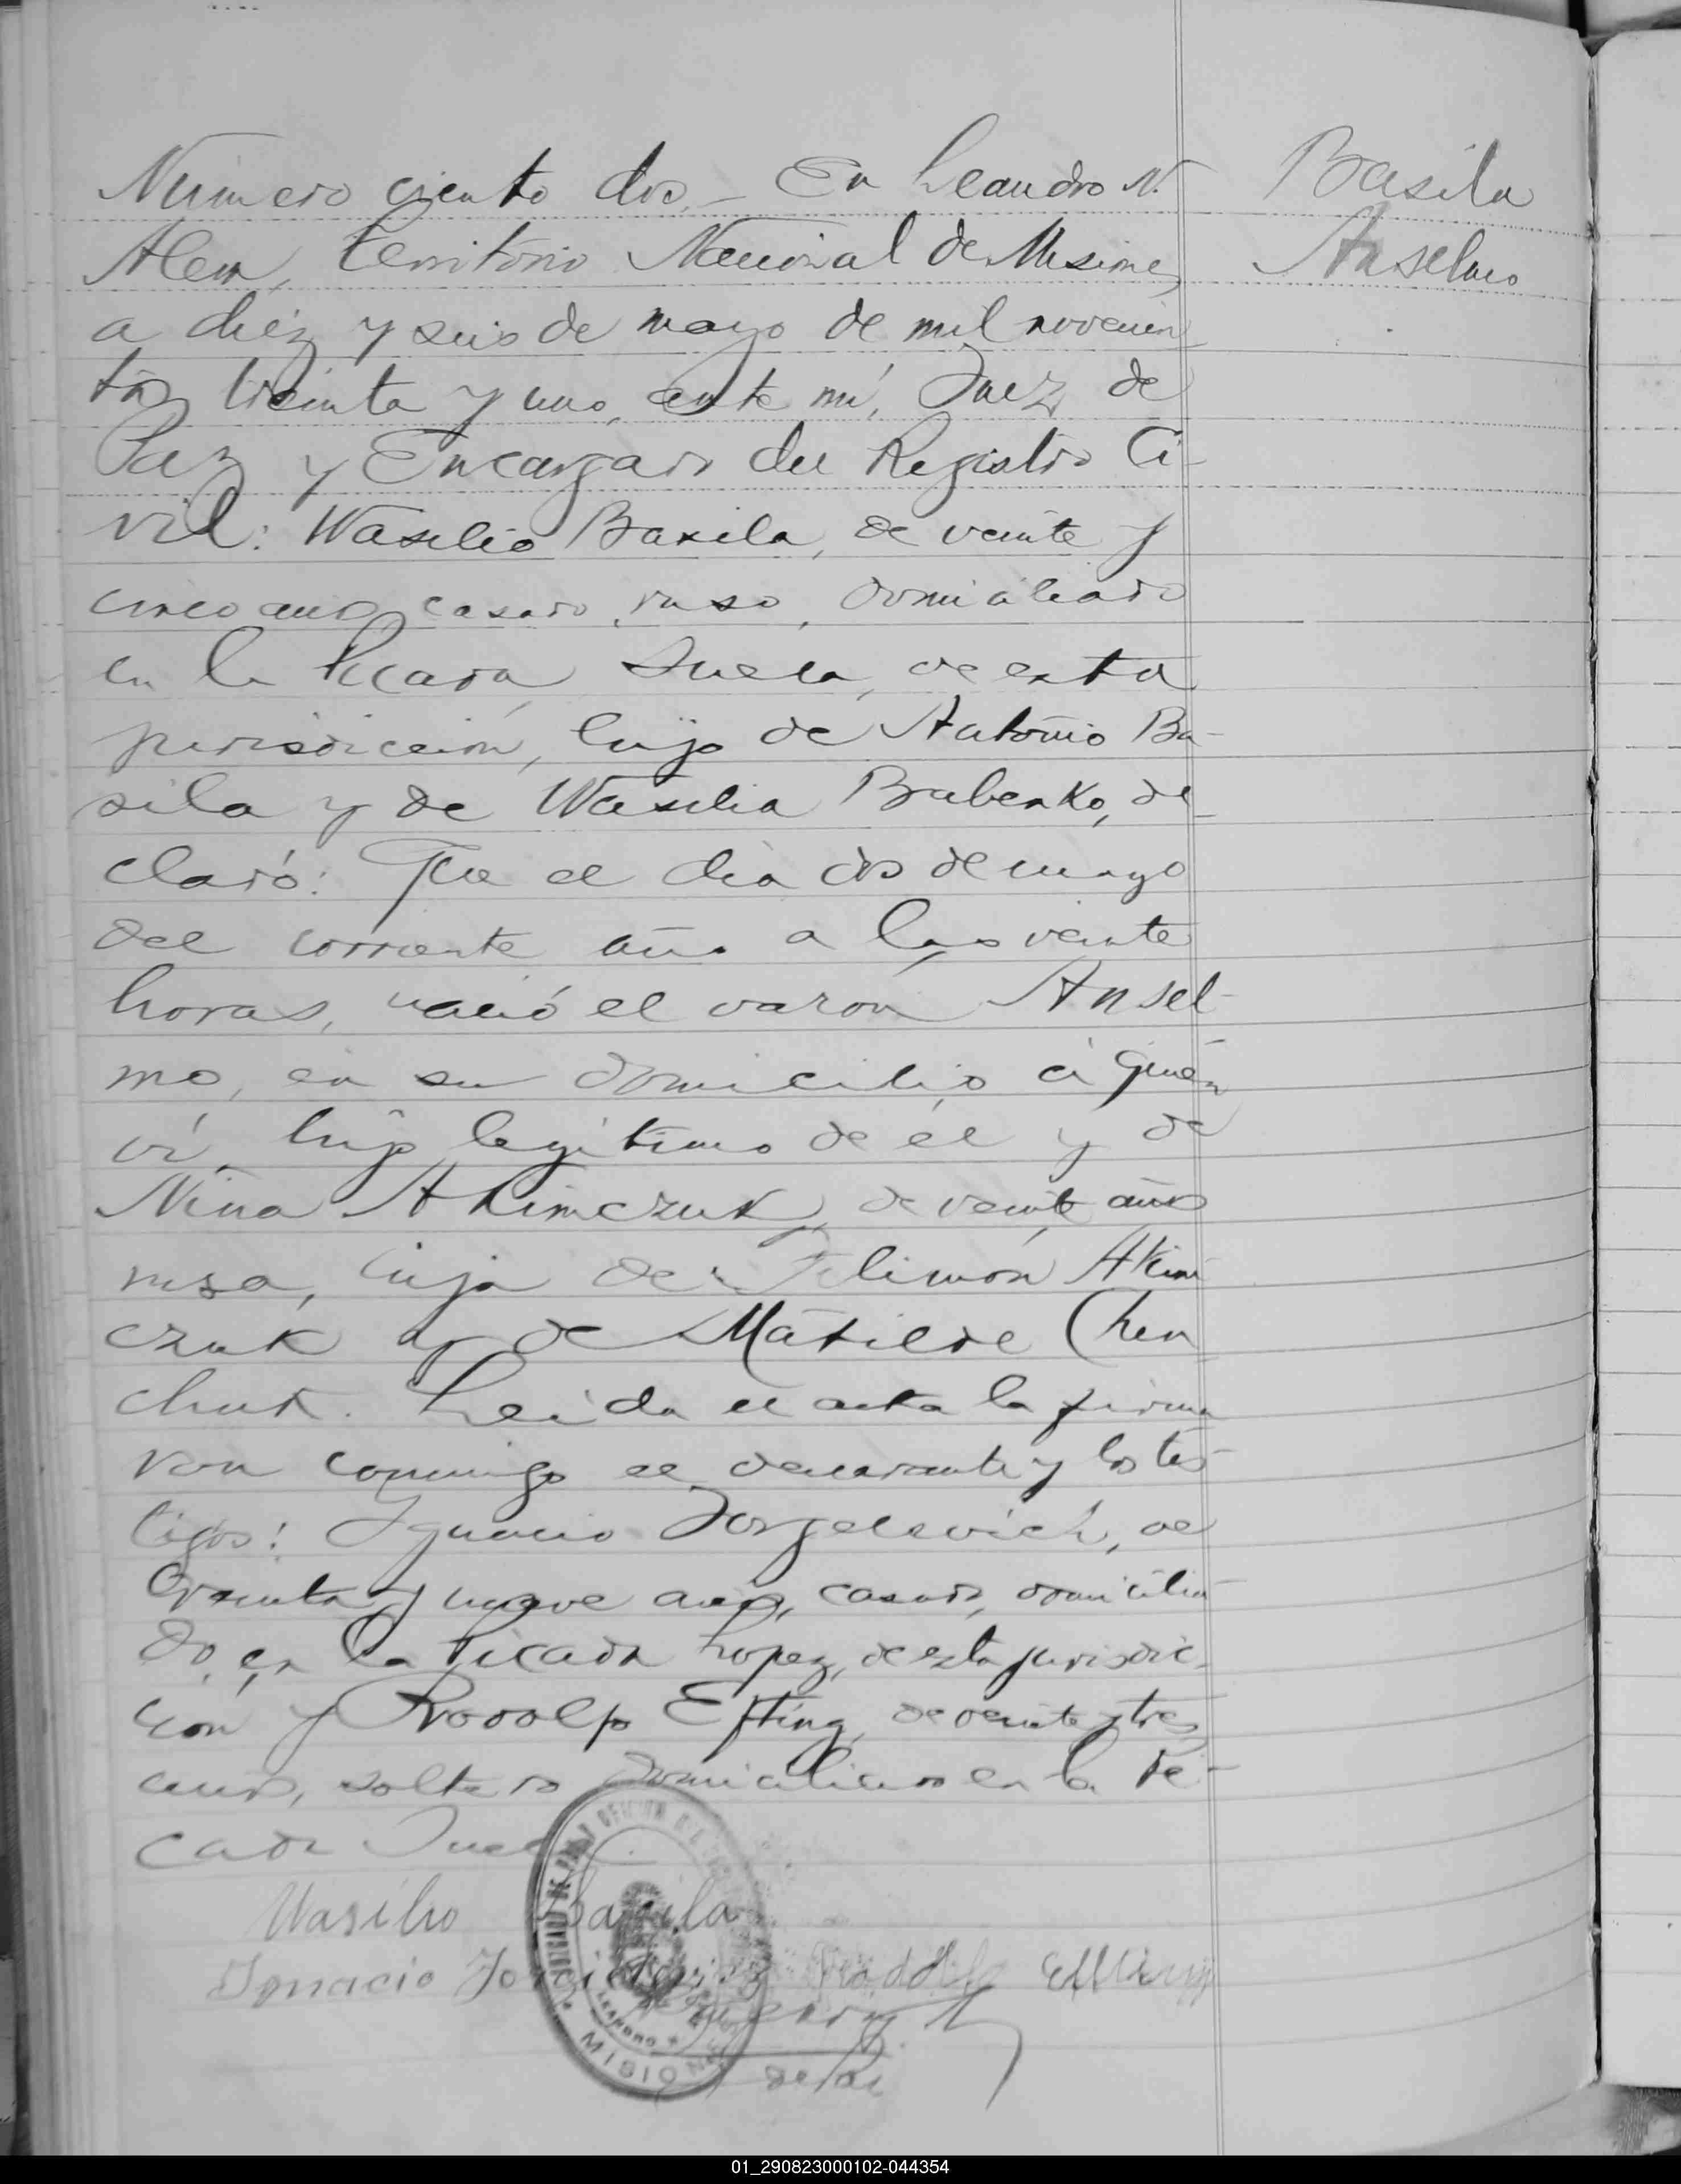 Número ciento dos.- En Leandro N.
Alem, Territorio Nacional de Misiones
a diéz y seis de mayo de mil novecien
tos treinta y uno, ante mí, Juez de
Paz y Encargado del Registro Ci-
vil: Wasilio Basila, de veinte y
cinco años, casado, ruso, domiciliado
en la Picada Sueca, de esta
jurisdicción, hijo de Antonio Ba-
sila y de Wasilia Babenko, de-
claró: Que el dia dos de mayo
del corriente año a las veinte
horas, nació el varon Ansel-
mo, en su domicilio á quién
ví, hijo legitimo de él y de
Nina Akimczuk, de veinte años
rusa, hija de Filimón Akim
czuk y de Matilde Chen
chuk. Leida el acta la firma
ron conmigo el declarante y los tes-
tigos: Ignacio Jorgelevich, de
treinta y nueve años, casado, domicilia
do en la Picada Lopez, de esta jurisdic-
ción y Rodolfo Efting, de veinte y tres
años, soltero domiciliado en la Pi-
cada Sueca
Wasilio Basila
Ignacio Rodolfo Effting
MISIONES
Basila
Anselmo
01_290823000102-044354